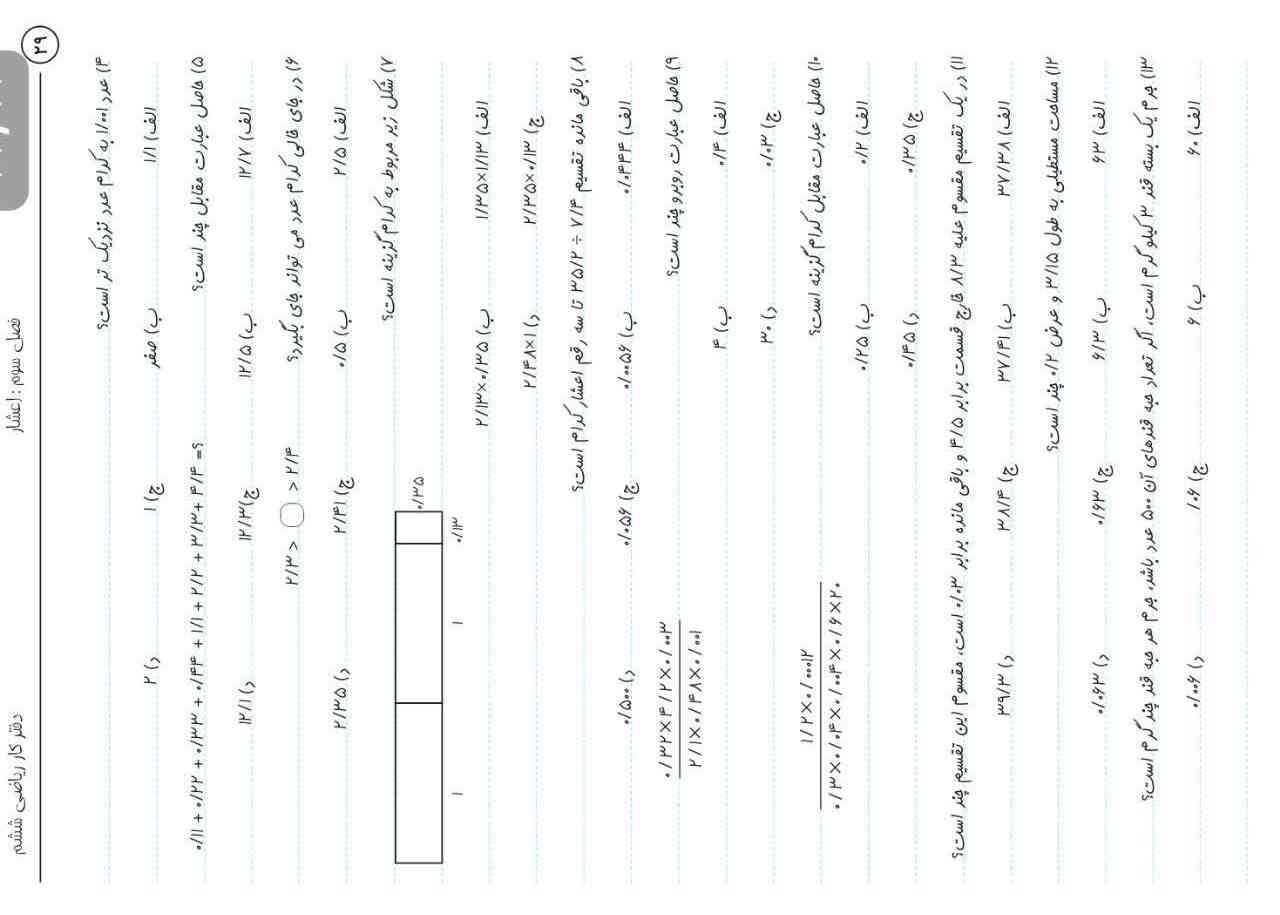 دفتر کار ریاضی ششم
فصل سوم : اعشار
۲۹
۴) عدد ۱/۰۰۱ به کدام عدد نزدیک تر است؟
الف) ۱/۱ ب) صفر ج) ۱ د) ۲
۵) حاصل عبارت مقابل چند است؟ ۰/۱۱ + ۰/۲۲ + ۰/۳۳ + ۰/۴۴ + ۱/۱ + ۲/۲ + ۳/۳ + ۴/۴ = ؟
الف) ۱۲/۷ ب) ۱۲/۵ ج) ۱۲/۳ د) ۱۲/۱
۶) در جای خالی کدام عدد می تواند جای بگیرد؟ ۲/۳ < < ۲/۴
الف) ۲/۵ ب) ۰/۵ ج) ۲/۴۱ د) ۲/۳۵
۷) شکل زیر مربوط به کدام گزینه است؟
۰/۳۵
۱ ۱ ۰/۱۳
الف) ۱/۳۵×۱/۱۳ ب) ۲/۱۳×۰/۳۵
ج) ۲/۳۵×۰/۱۳ د) ۲/۴۸×۱
۸) باقی مانده تقسیم ۷/۴ ÷ ۳۵/۲ تا سه رقم اعشار کدام است؟
الف) ۰/۰۴۴۴ ب) ۰/۰۰۵۶ ج) ۰/۰۵۶ د) ۰/۵۰۰
۹) حاصل عبارت روبرو چند است؟ ۰/۳۲×۴/۲×۰/۰۰۳
۲/۱×۰/۴۸×۰/۰۰۱
الف) ۰/۴ ب) ۴
ج) ۰/۰۳ د) ۳۰
۱۰) حاصل عبارت مقابل کدام گزینه است؟ ۱/۲×۰/۰۰۰۱۲
۰/۳×۰/۰۴×۰/۰۰۴×۰/۶×۲۰
الف) ۰/۲ ب) ۰/۲۵
ج) ۰/۳۵ د) ۰/۴۵
۱۱) در یک تقسیم مقسوم علیه ۸/۳ خارج قسمت برابر ۴/۵ و باقی مانده برابر ۰/۰۳ است، مقسوم این تقسیم چند است؟
الف) ۳۷/۳۸ ب) ۳۷/۴۱ ج) ۳۸/۴ د) ۳۹/۳
۱۲) مساحت مستطیلی به طول ۳/۱۵ و عرض ۰/۲ چند است؟
الف) ۶۳ ب) ۶/۳ ج) ۰/۶۳ د) ۰/۰۶۳
۱۳) جرم یک بسته قند ۳ کیلوگرم است، اگر تعداد حبه قندهای آن ۵۰۰ عدد باشد، جرم هر حبه قند چند گرم است؟
الف) ۶۰ ب) ۶ ج) ۰/۰۶ د) ۰/۰۰۶